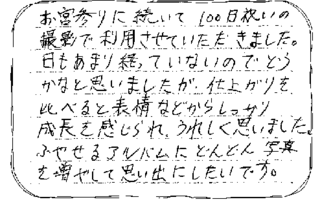 お宮参りに続いて100日祝いの
撮影で利用させていただきました。
日もあまり経っていないのでどう
かなと思いましたが、仕上がりを
比べると表情などからしっかり
成長を感じられ、うれしく思いました。
ふやせるアルバムにどんどん写真
を増やして思い出にしたいです。